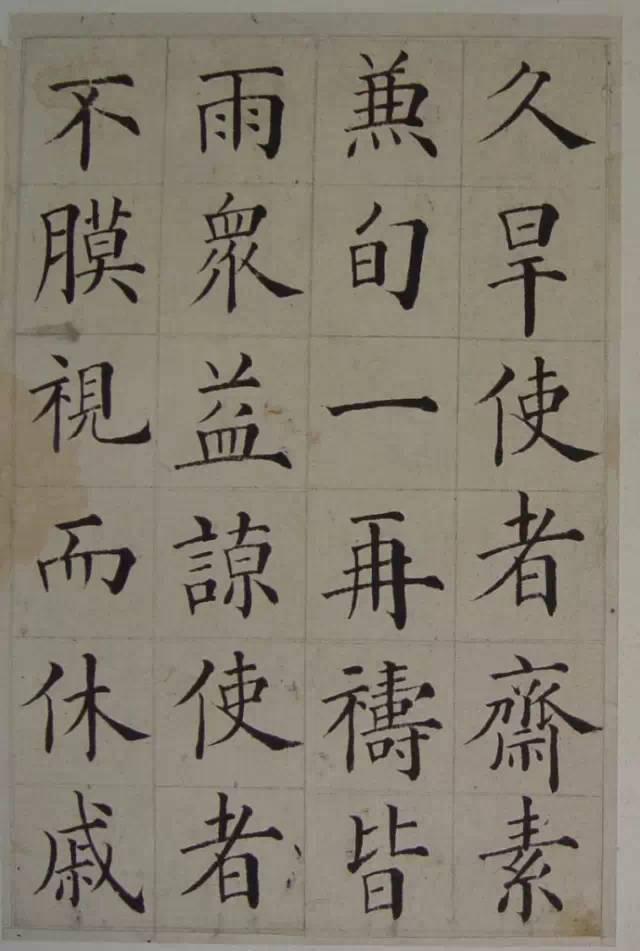 久旱使者齋素
兼旬一再禱皆
雨眾益諒使者
不膜視而休戚